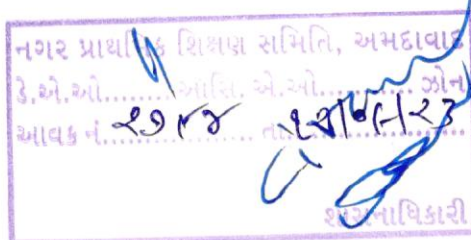 નગર પ્રાથમિક શિક્ષણ સમિતિ, અમદાવાદ
ડે.એ.ઓ........આસિ. એ.ઓ........ ઝોન
આવક નં............... તા...............
શાસનાધિકારી